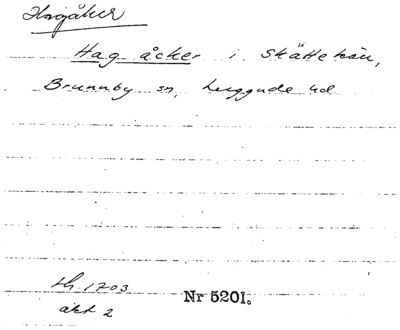 Hagåker
Hag åcker i Skättekärr,
Brunnby sn, Luggude hd
th. 1703
akt 2
Nr 5201.